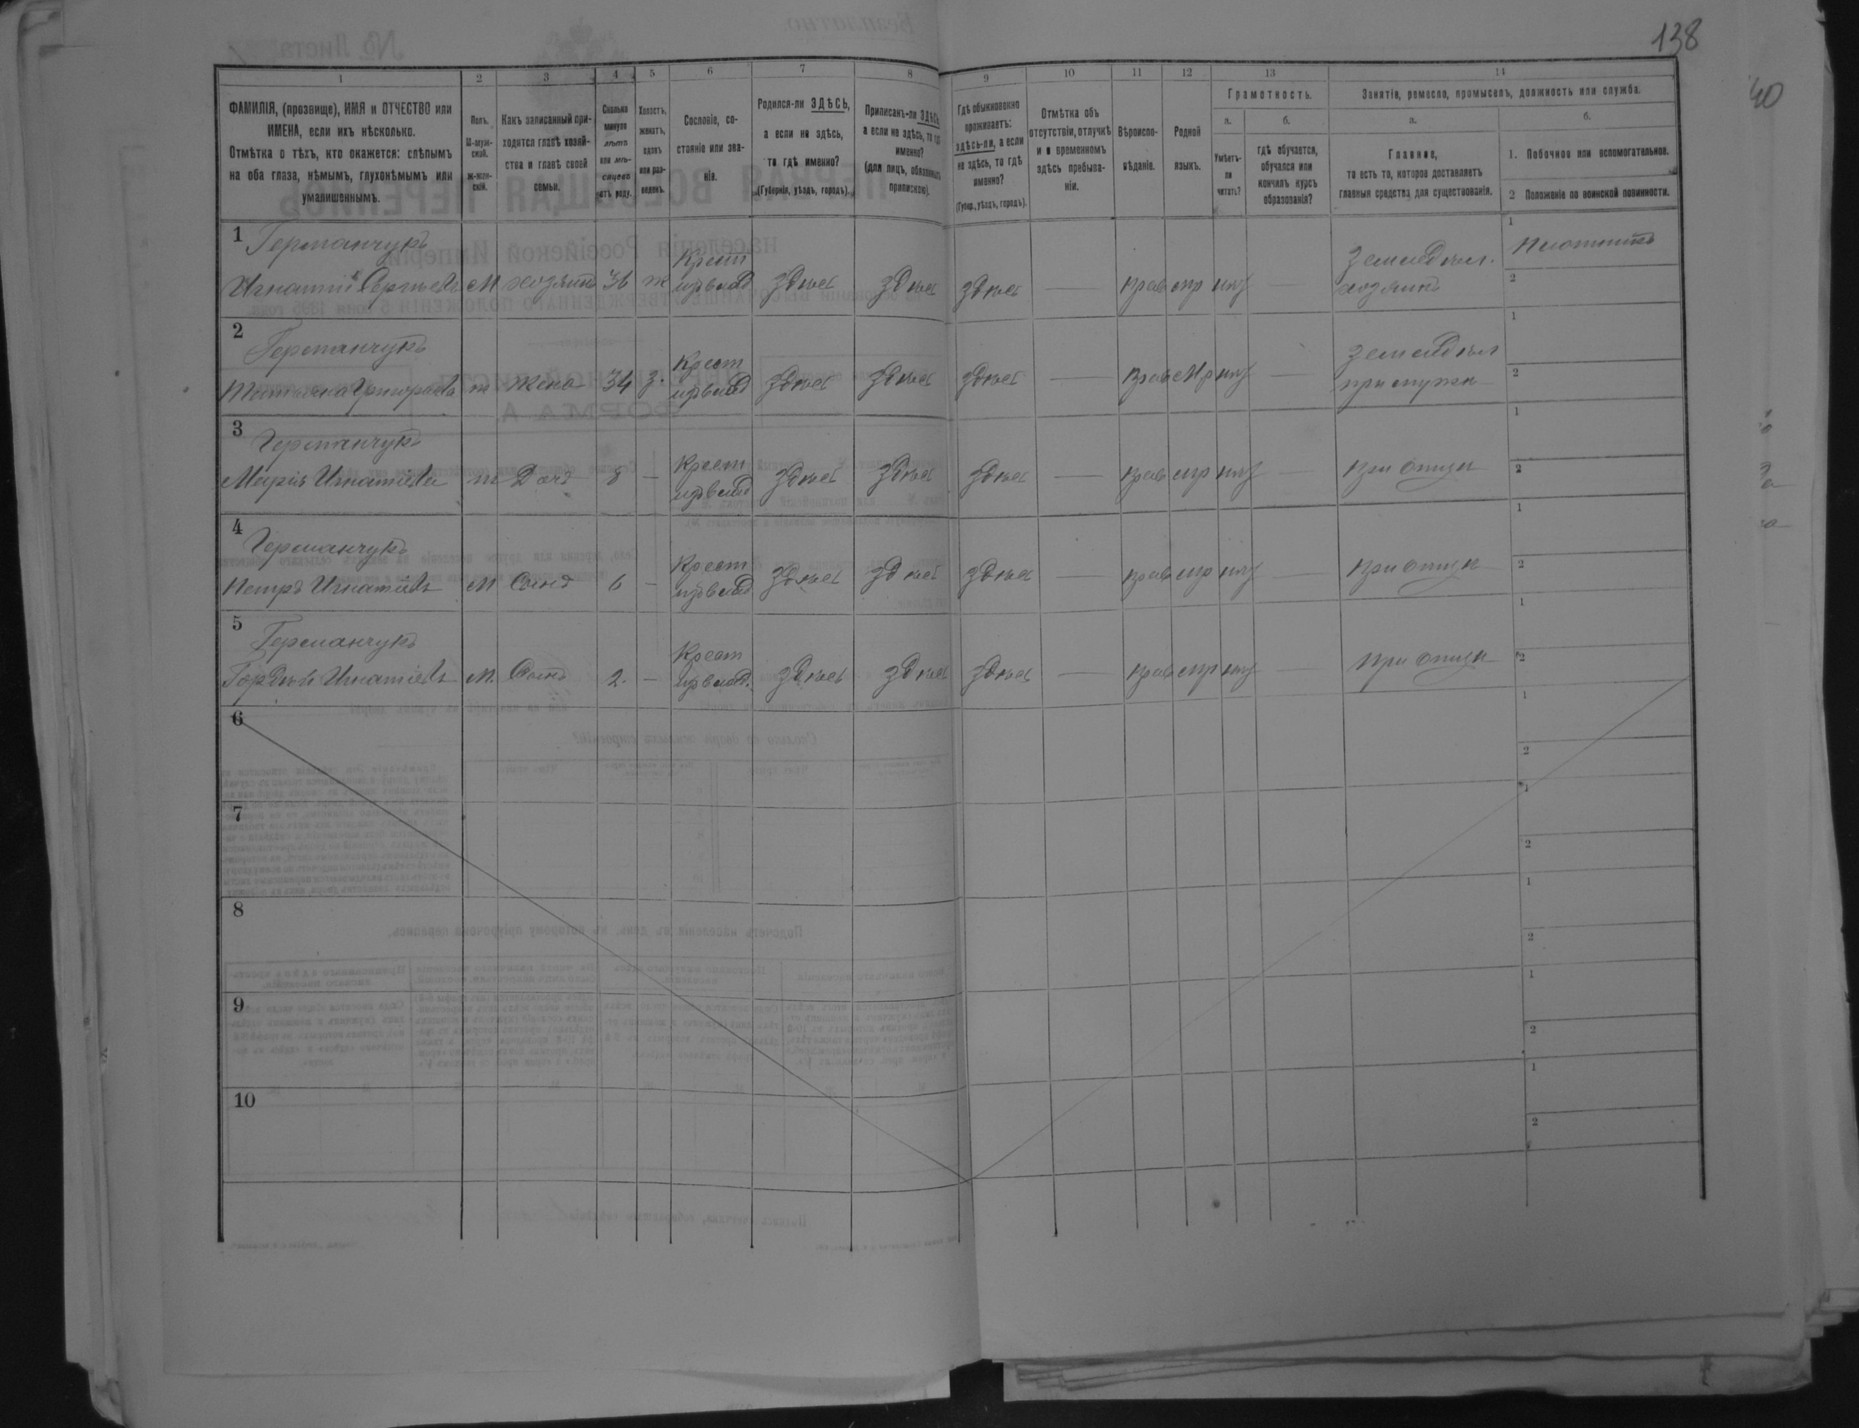 138
40
1 2 3 4 5 6 7 8 9 10 11 12 13 14
ФАМИЛІЯ, (прозвище), ИМЯ и ОТЧЕСТВО или
ИМЕНА, если ихъ нѣсколько.
Отмѣтка о тѣхъ, кто окажется: слѣпымъ
на оба глаза, нѣмымъ, глухонѣмымъ или
умалишеннымъ.
Полъ.
М-муж-
ской.
Ж-жен-
скій.
Какъ записанный при-
ходится главѣ хозяй-
ства и главѣ своей
семьи.
Сколько
минуло
лѣтъ
или мѣ-
сяцевъ
отъ роду.
Холостъ,
женатъ,
вдовъ
или раз-
веденъ.
Сословіе, со-
стояніе или зва-
ніе.
Родился-ли ЗДѢСЬ,
а если не здѣсь,
то гдѣ именно?
(Губернія, уѣздъ, городъ).
Приписанъ-ли ЗДѢСЬ,
а если не здѣсь, то гдѣ
именно?
(для лицъ, обязанныхъ
припискою).
Гдѣ обыкновенно
проживаетъ:
здѣсь-ли, а если
не здѣсь, то гдѣ
именно?
(Губер., уѣздъ, городъ).
Отмѣтка объ
отсутствіи, отлучкѣ
и о временномъ
здѣсь пребыва-
ніи.
Вѣроиспо-
вѣданіе.
Родной
языкъ.
Грамотность.
а.
Умѣетъ-
ли
читать?
б.
гдѣ обучается,
обучался или
кончилъ курсъ
образованія?
Занятіе, ремесло, промыселъ, должность или служба.
а.
Главное,
то есть то, которое доставляетъ
главныя средства для существованія.
б.
1. Побочное или вспомогательное.
2 Положеніе по воинской повинности.
1 Германчукъ
Игнатій Сергѣевъ М хозяинъ 36 ж Крест из влад здѣсь здѣсь здѣсь — прав мр нѣт — Земледѣл. хозяинъ
1 Плотникъ
2
2 Германчукъ
Татьяна Григорьева ж жена 34 з. Крест из влад здѣсь здѣсь здѣсь — прав мр нѣт — Земледѣл при мужѣ
1
2
3 Германчукъ
Марія Игнатіева ж Дочь 8 — Крест из влад здѣсь здѣсь здѣсь — прав мр нѣт — при отцѣ
1
2
4 Германчукъ
Петръ Игнатіевъ М Сынъ 6 — Крест из влад здѣсь здѣсь здѣсь — прав мр нѣт — при отцѣ
1
2
5 Германчукъ
Гордѣй Игнатіевъ М. Сынъ 2. — Крест из влад. здѣсь здѣсь здѣсь — прав мр нѣт — при отцѣ
1
2
6
1
2
7
1
2
8
1
2
9
1
2
10
1
2